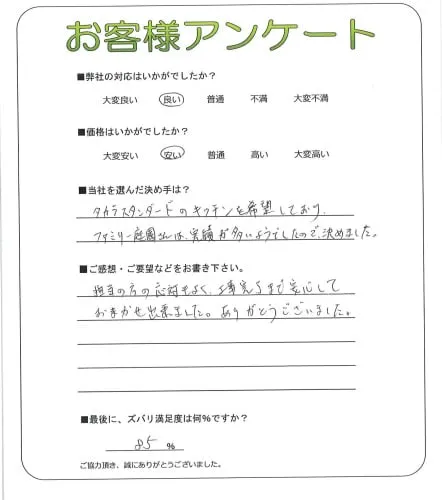 お客様アンケート
■弊社の対応はいかがでしたか?
大変良い 良い 普通 不満 大変不満
■価格はいかがでしたか?
大変安い 安い 普通 高い 大変高い
■当社を選んだ決め手は?
タカラスタンダードのキッチンを希望しており、
ファミリー庭園さんは、実績が多いようでしたので、決めました。
■ご感想・ご要望などをお書き下さい。
担当の方の応対もよく、工事完了まで安心して
おまかせ出来ました。ありがとうございました。
■最後に、ズバリ満足度は何%ですか?
85 %
ご協力頂き、誠にありがとうございました。